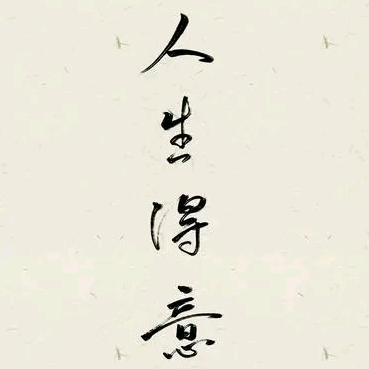 人生得意